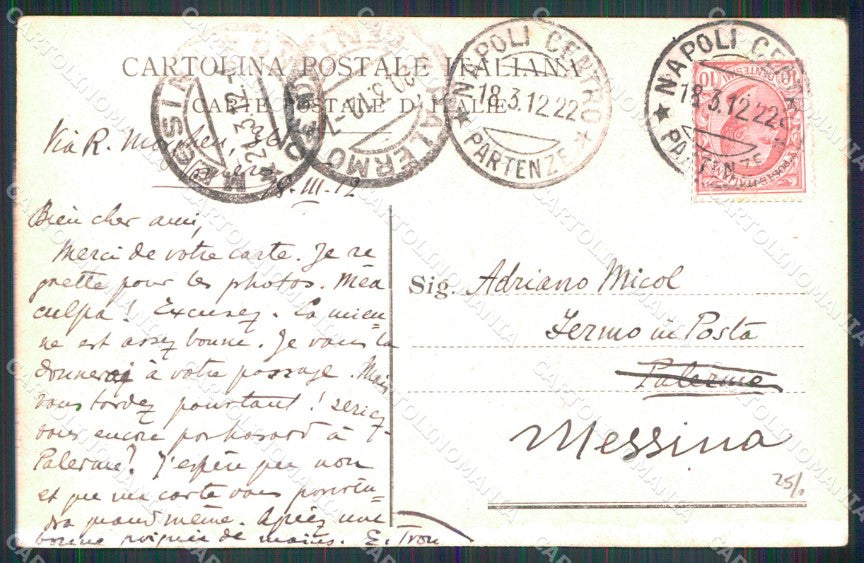 CARTOLINA POSTALE ITALIANA
CARTE POSTALE D'ITALIE
NAPOLI CENTRO
18.3.12.22
PARTENZE
NAPOLI CENTRO
18.3.12.22
PARTENZE
PALERMO
Via R. 36
18-III-12
Bien cher ami,
Merci de votre carte. Je re
grette pour les photos. Mea
culpa ! Excusez. La mien-
ne est assez bonne. Je vous la
donnerai à votre passage. Mais
vous tardez pourtant ! Seriez-
vous encore par hasard à
Palerme? J'espère que non
et que ma carte vous parvien-
dra quand même. Agréez une
bonne poignée de mains. E. Tron
Sig. Adriano Micol
Fermo in Posta
Palermo
Messina
25/.
CARTOLINOMANIA